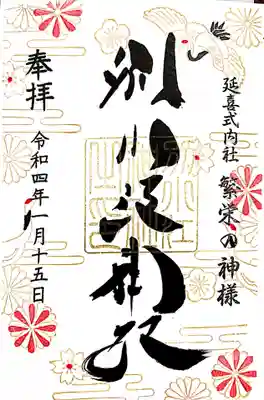 延喜式内社 繁栄の神様
別小江神社
奉拝
令和四年一月十五日